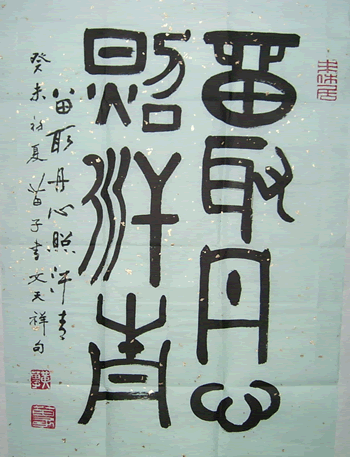 留取丹心
照汗青
留取丹心照汗青
癸未初夏苗子書文天祥句